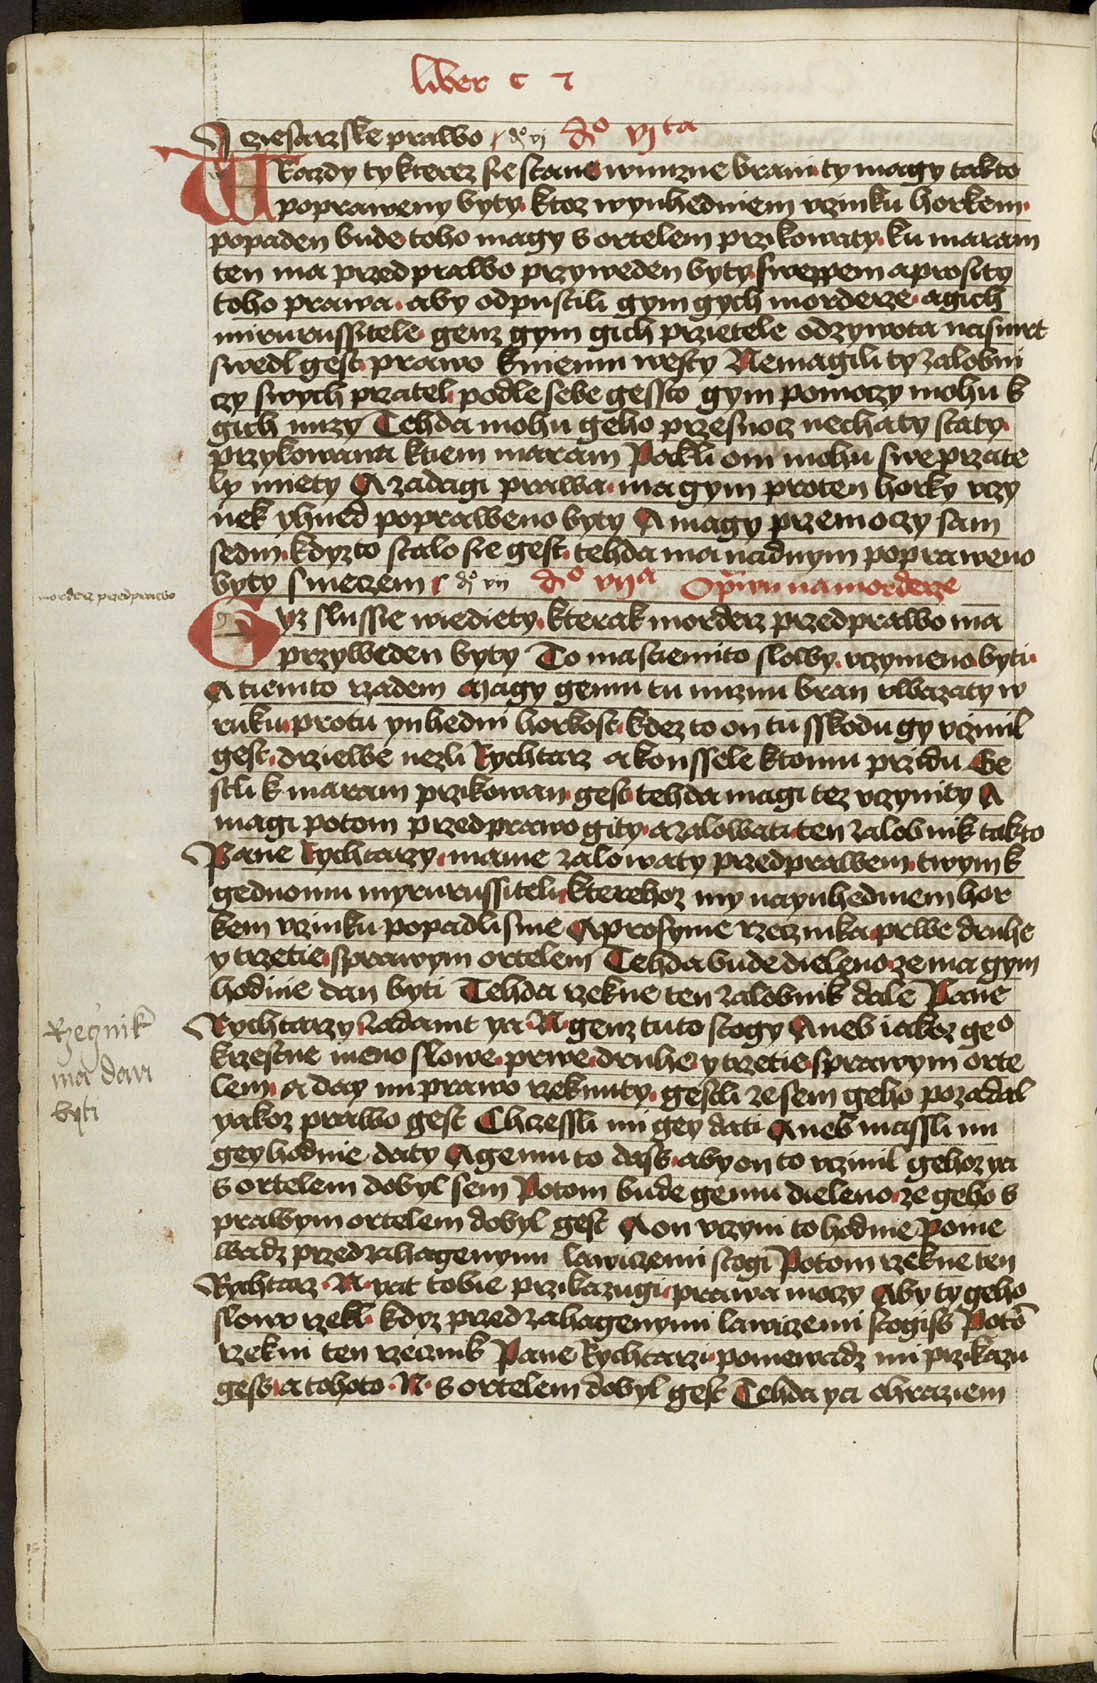 liber c 7
A ciesarzske prawo dº vj dº vjta
Wrazdy ty kterez sie stane w mirzne brani ty magy takto
popraweny byty ktoz wynhedniem vczinku horkem
popaden bude toho magy s ortelem przikowaty ku maram
ten ma przed prawo przyweden byty sweppem a prosyty
toho prawa aby odpustili gym gych morderze a gich
mirurussitele genz gym gich przietele od zywota na smrt
swedl gest prawo k niemu westy Nemagili ty zalobni
czy swych przatel podle sebe gessto gym pomoczy mohu k
gich miczy Tehda mohu geho przesnocz nechaty staty
przykowana k tiem maram Pakli oni mohu swe przate
ly miety A zadagi prawa ma gym pro ten horky vczy
nek yhned popraweno byty A magy przemoczy sam
sedm kdyz to stalo sie gest tehda ma nad nym popraweno
byty s meczem dº vij dº vija O prwu na morderze
morderz przed prawo
Gyz slussie wiediety kterak morderz przed prawo ma
przyweden byty To ma s tiemito slowy vczyneno byti
A tiemito rzadem Magy gemu tu mirznu bran vwazaty w
ruku pro tu ynhedni horkost kdez to on tu sskodu gy vczinil
gest drziewe nezli Rychtarz a konssele k tomu przidu Ge
stli k maram przikowan gest tehda magi tez vczynity A
magi potom przed prawo gity a zalowati ten zalobnik takto
Pane Rychtarzy mame zalowaty przed prawem twym k
gednomu myrurussiteli kterehoz my na ynhedniem hor
kem vczinku popadli sme A prosyme rzecznika prwe druhe
y trzetie s prawym ortelem Tehda bude dieleno ze ma gym
hodnie dan byti Tehda rzekne ten zalobnik dale Pane
Rychtarzy zadamt ya N genz tuto stogy A neb iakoz geº
krzestne meno slowe prwe druhe y trzetie s prawym orte
lem A day mi prawo rzeknuty gestli ze sem geho pozadal
yakoz prawo gest Chczessli mi gey dati A neb massli mi
gey hodnie daty A gemu to dass aby on to vczinil gehoz ya
s ortelem dobyl sem Potom bude gemu dieleno ze geho s
prawym ortelem dobyl gest A on vczyni to hodnie Ponie
wadz przed zahagenymi lawiczemi stogi Potom rzekne ten
Rychtarz N yat tobie przikazugi prawa moczy Aby ty geho
slowo rzekl kdyz przed zahagenymi lawiczemi stogiss Potō
rzekni ten rzecznik Pane Rychtarzi poniewadz mi przikazu
gess a tohoto N s ortelem dobyl gest Tehda ya ohraziem
Rzeznik
ma dan
byti